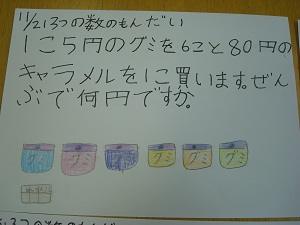 11/21 3つの数のもんだい
1こ5円のグミを6こと80円の
キャラメルを1こ買います。ぜん
ぶで何円ですか。
グミ グミ グミ グミ グミ グミ